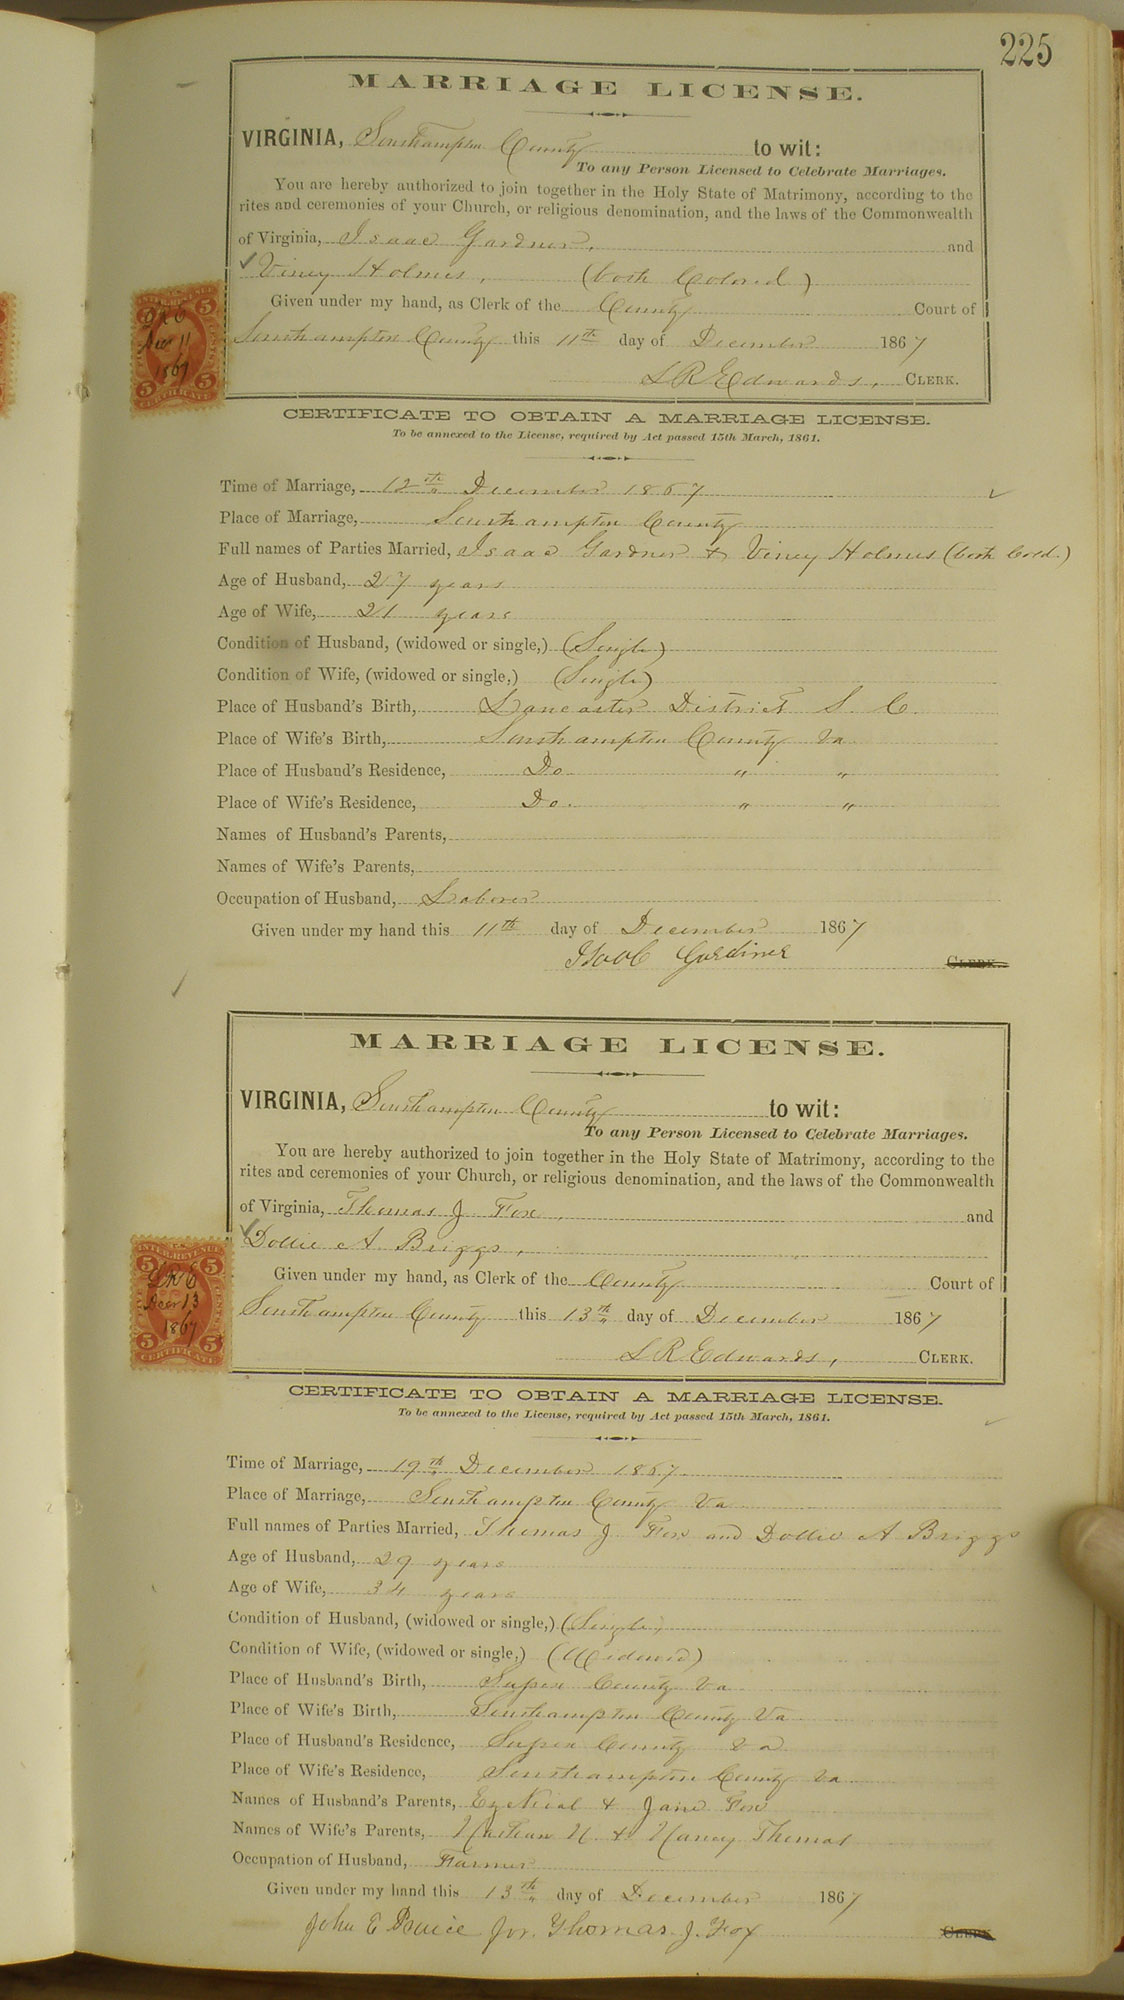 225
MARRIAGE LICENSE.
VIRGINIA, Southampton County to wit:
To any Person Licensed to Celebrate Marriages.
You are hereby authorized to join together in the Holy State of Matrimony, according to the
rites and ceremonies of your Church, or religious denomination, and the laws of the Commonwealth
of Virginia, Isaac Gardner, and
Viney Holmes, (both Colored)
Given under my hand, as Clerk of the County Court of
Southampton County this 11th day of December 1867
L R Edwards, CLERK.
5 5
LRE
Decr 11
1867
5 5
CERTIFICATE
CERTIFICATE TO OBTAIN A MARRIAGE LICENSE.
To be annexed to the License, required by Act passed 15th March, 1861.
Time of Marriage, 12th December 1867
Place of Marriage, Southampton County
Full names of Parties Married, Isaac Gardner & Viney Holmes (both Cold.)
Age of Husband, 27 years
Age of Wife, 21 years
Condition of Husband, (widowed or single,) (Single)
Condition of Wife, (widowed or single,) (Single)
Place of Husband's Birth, Lancaster District S. C.
Place of Wife's Birth, Southampton County Va
Place of Husband's Residence, Do " "
Place of Wife's Residence, Do. " "
Names of Husband's Parents,
Names of Wife's Parents,
Occupation of Husband, Laborer
Given under my hand this 11th day of December 1867
Gardiner CLERK.
MARRIAGE LICENSE.
VIRGINIA, Southampton County to wit:
To any Person Licensed to Celebrate Marriages.
You are hereby authorized to join together in the Holy State of Matrimony, according to the
rites and ceremonies of your Church, or religious denomination, and the laws of the Commonwealth
of Virginia, Thomas J Fox, and
Dollie A Briggs,
Given under my hand, as Clerk of the County Court of
Southampton County this 13th day of December 1867
L R Edwards, CLERK.
U.S.
INTER. REVENUE
5 5
LRE
Decr 13
1867
5 5
CERTIFICATE
CERTIFICATE TO OBTAIN A MARRIAGE LICENSE.
To be annexed to the License, required by Act passed 15th March, 1861.
Time of Marriage, 19th December 1867
Place of Marriage, Southampton County Va
Full names of Parties Married, Thomas J Fox and Dollie A Briggs
Age of Husband, 29 years
Age of Wife, 34 years
Condition of Husband, (widowed or single,) (Single)
Condition of Wife, (widowed or single,) (Widowed)
Place of Husband's Birth, Sussex County Va
Place of Wife's Birth, Southampton County Va
Place of Husband's Residence, Sussex County Va
Place of Wife's Residence, Southampton County Va
Names of Husband's Parents, Ezekial & Jane Fox
Names of Wife's Parents, Nathan N. & Nancy Thomas
Occupation of Husband, Farmer
Given under my hand this 13th day of December 1867
John E Jor. Thomas. J. Fox CLERK